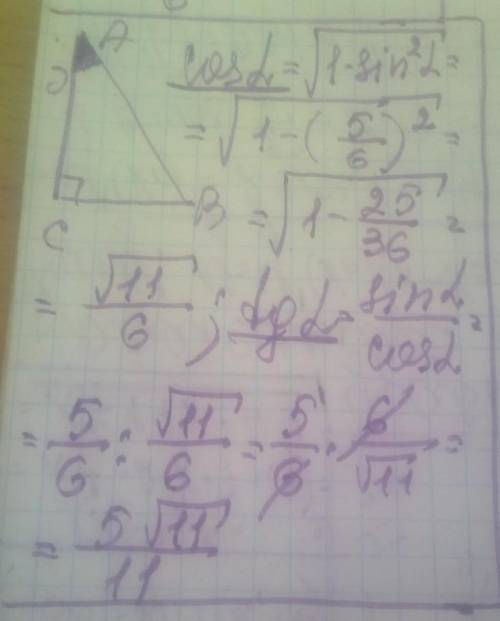 A
cos α = √(1 - sin²α) =
= √(1 - (5/6)²) =
B
= √(1 - 25/36) =
C
= √11/6 ; tg α = sin α/cos α =
= 5/6 : √11/6 = 5/6 · 6/√11 =
= 5√11/11